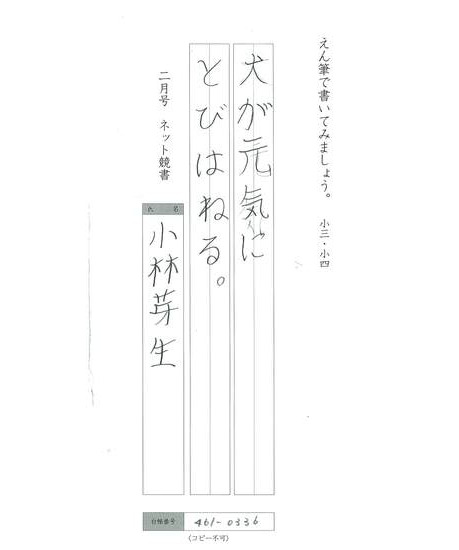 えん筆で書いてみましょう。 小三・小四
犬が元気に
とびはねる。
二月号 ネット競書
氏名
小林芽生
台帳番号 461-0336
(コピー不可)